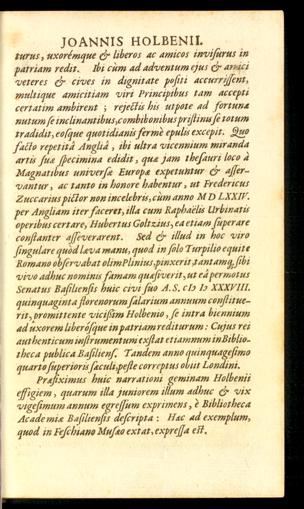 JOANNIS HOLBENII.
turus, uxorémque & liberos ac amicos invisurus in
patriam redit. Ibi cùm ad adventum ejus & amici
veteres & cives in dignitate positi accurrissent,
multique amicitiam viri Principibus tam accepti
certatim ambirent; rejectis his utpote ad fortunæ
nutum se inclinantibus, combibonibus pristinus se totum
tradidit, eosque quotidianis fermè epulis excepit. Quo
facto repetitâ Angliâ, ibi ultra vicennium miranda
artis suæ specimina edidit, quæ jam thesauri loco à
Magnatibus universæ Europæ expetuntur & asser-
vantur, ac tanto in honore habentur, ut Fredericus
Zuccarius pictor non incelebris, cùm anno MD LXXIV.
per Angliam iter faceret, illa cum Raphaëlis Urbinatis
operibus certare, Hubertus Goltzius, ea etiam superare
constanter asseverarent. Sed & illud in hoc viro
singulare quòd læva manu, quod in solo Turpilio equite
Romano observabat olim Plinius, pinxerit, tantamq, sibi
vivo adhuc nominis famam quæsiverit, ut eâ permotus
Senatus Basiliensis huic civi suo A.S. cIɔ Iɔ XXXVIII.
quinquaginta florenorum salarium annuum constitue-
rit, promittente vicissim Holbenio, se intra biennium
ad uxorem liberósque in patriam rediturum: Cujus rei
authenticum instrumentum exstat etiamnum in Biblio-
theca publica Basiliens. Tandem anno quinquagesimo
quarto superioris sæculi, peste correptus obiit Londini.
Præfiximus huic narrationi geminam Holbenii
effigiem, quarum illa juniorem illum adhuc & vix
vigesimum annum egressum exprimens, è Bibliotheca
Academiæ Basiliensis descripta: Hæc ad exemplum,
quod in Feschiano Musæo extat, expressa est.